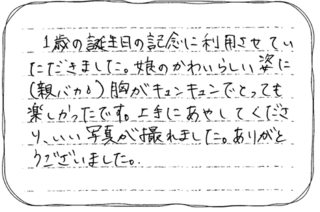 1歳の誕生日の記念に利用させてい
ただきました。娘のかわいらしい姿に
(親バカ)胸がキュンキュンでとっても
楽しかったです。上手にあやしてくださ
り、いい写真が撮れました。ありがと
うございました。